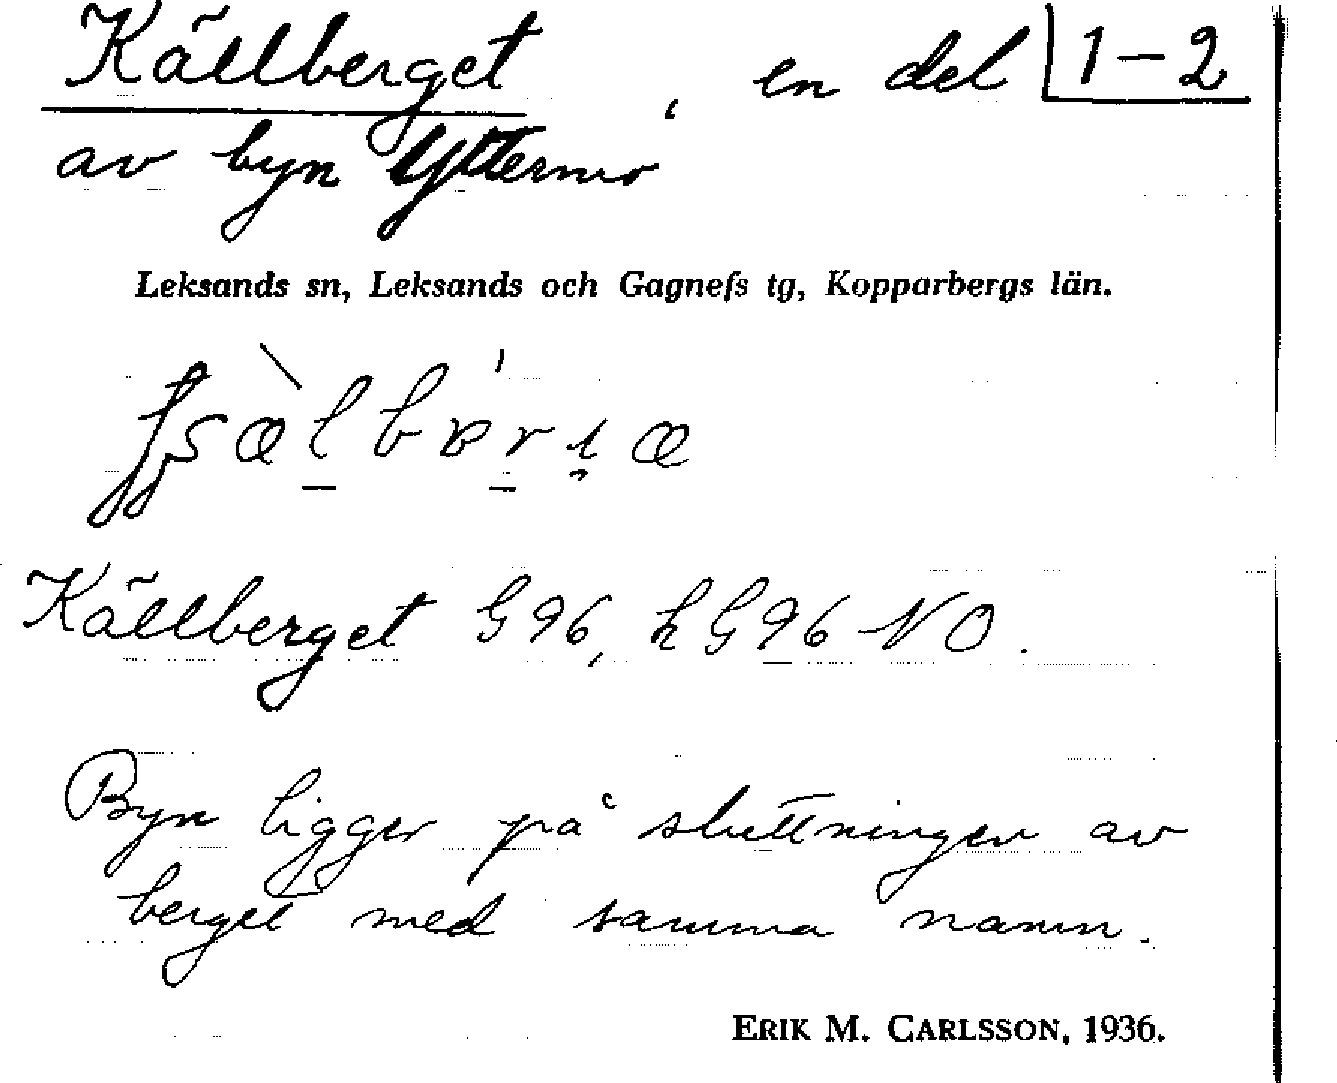 Källberget, en del 1–2
av byn Yttermo
Leksands sn, Leksands och Gagnefs tg, Kopparbergs län.
Källberget G96, h G96 NO.
Byn ligger på sluttningen av
berget med samma namn.
ERIK M. CARLSSON, 1936.